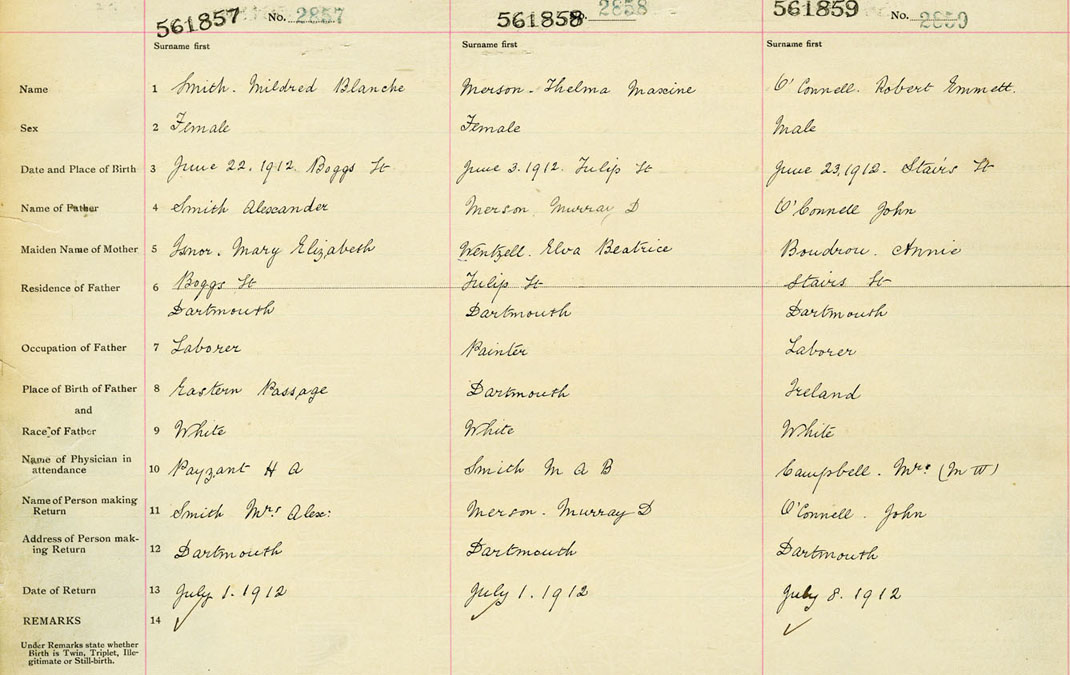 561857 No. 2857 561858 No. 2858 561859 No. 2859
Surname first Surname first Surname first
Name 1 Smith. Mildred Blanche Merson - Thelma Maxine O'Connell. Robert Emmett.
Sex 2 Female Female Male
Date and Place of Birth 3 June 22. 1912. Boggs St June 3. 1912. Tulip St June 23, 1912. Stairs St
Name of Father 4 Smith Alexander Merson, Murray D O'Connell John
Maiden Name of Mother 5 Isnor. Mary Elizabeth Wentzell. Elva Beatrice Boudrou. Annie
Residence of Father 6 Boggs St Tulip St Stairs St
Dartmouth Dartmouth Dartmouth
Occupation of Father 7 Laborer Painter Laborer
Place of Birth of Father 8 Eastern Passage Dartmouth Ireland
and
Race of Father 9 White White White
Name of Physician in
attendance 10 Payzant H A Smith M A B Campbell. Mrs (M W)
Name of Person making
Return 11 Smith Mrs Alex: Merson. Murray D O'Connell. John
Address of Person mak-
ing Return 12 Dartmouth Dartmouth Dartmouth
Date of Return 13 July 1. 1912 July 1. 1912 July 8. 1912
REMARKS 14 ✓ ✓ ✓
Under Remarks state whether
Birth is Twin, Triplet, Ille-
gitimate or Still-birth.